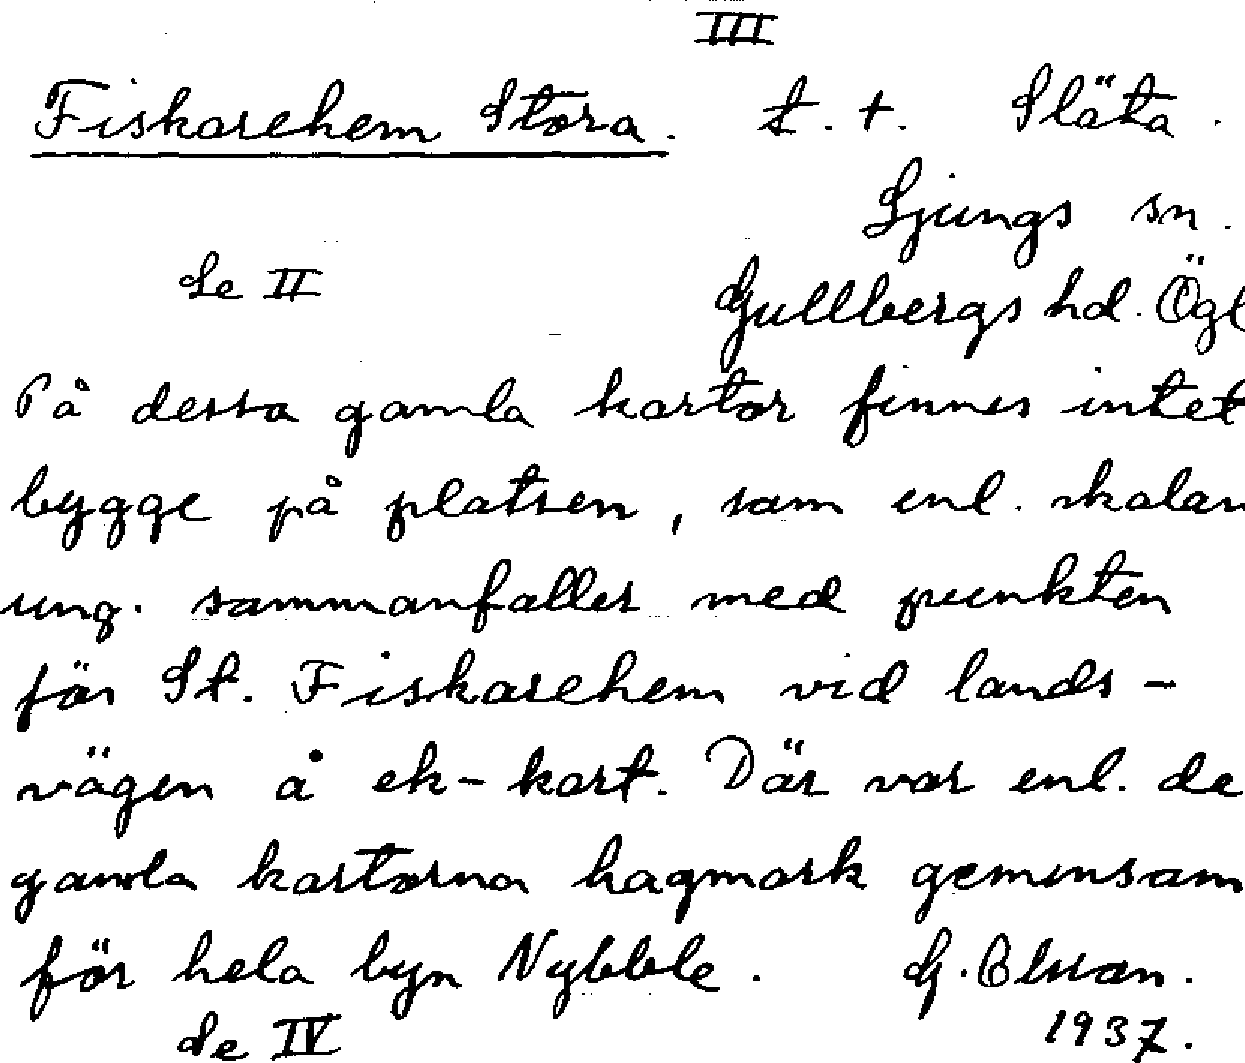 III
Fiskarehem Stora. t. t. Släta.
Ljungs sn.
Se II
Gullbergs hd. Ögl
På dessa gamla kartor finnes intet
bygge på platsen, som enl. skalan
ung. sammanfaller med punkten
för St. Fiskarehem vid lands-
vägen å ek-kart. Där var enl. de
gamla kartorna hagmark gemensam
för hela byn Nybble. G. Olsson.
Se IV 1937.